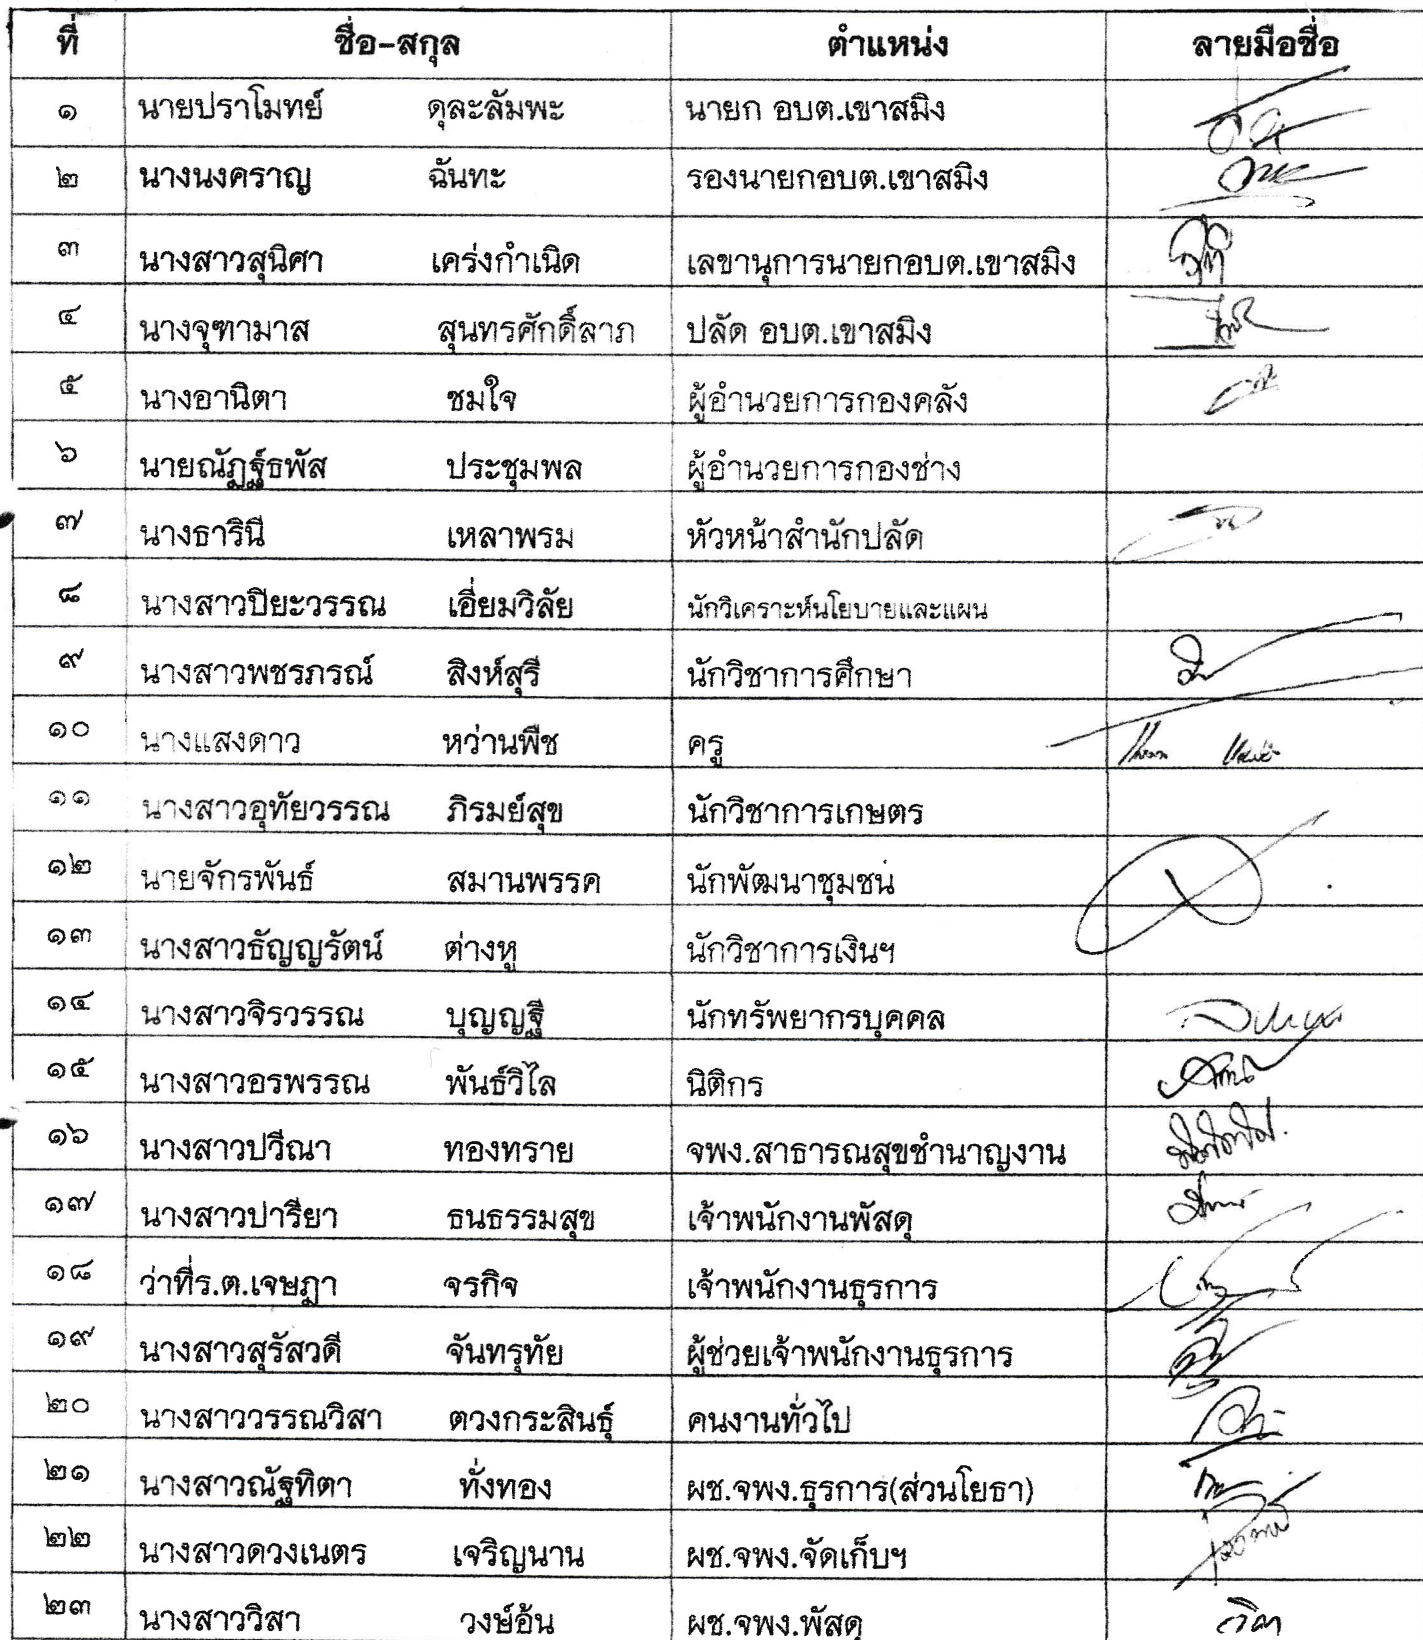 ที่ ชื่อ-สกุล ตำแหน่ง ลายมือชื่อ
๑ นายปราโมทย์ ดุละลัมพะ นายก อบต.เขาสมิง
๒ นางนงคราญ ฉันทะ รองนายกอบต.เขาสมิง
๓ นางสาวสุนิศา เคร่งกำเนิด เลขานุการนายกอบต.เขาสมิง
๔ นางจุฑามาส สุนทรศักดิ์ลาภ ปลัด อบต.เขาสมิง
๕ นางอานิตา ชมใจ ผู้อำนวยการกองคลัง
๖ นายณัฏฐ์ธพัส ประชุมพล ผู้อำนวยการกองช่าง
๗ นางธารินี เหลาพรม หัวหน้าสำนักปลัด
๘ นางสาวปิยะวรรณ เอี่ยมวิลัย นักวิเคราะห์นโยบายและแผน
๙ นางสาวพชรภรณ์ สิงห์สุรี นักวิชาการศึกษา
๑๐ นางแสงดาว หว่านพืช ครู
๑๑ นางสาวอุทัยวรรณ ภิรมย์สุข นักวิชาการเกษตร
๑๒ นายจักรพันธ์ สมานพรรค นักพัฒนาชุมชน
๑๓ นางสาวธัญญรัตน์ ต่างหู นักวิชาการเงินฯ
๑๔ นางสาวจิรวรรณ บุญญฐี นักทรัพยากรบุคคล
๑๕ นางสาวอรพรรณ พันธ์วิไล นิติกร
๑๖ นางสาวปวีณา ทองทราย จพง.สาธารณสุขชำนาญงาน
๑๗ นางสาวปารียา ธนธรรมสุข เจ้าพนักงานพัสดุ
๑๘ ว่าที่ร.ต.เจษฎา จรกิจ เจ้าพนักงานธุรการ
๑๙ นางสาวสุรัสวดี จันทรุทัย ผู้ช่วยเจ้าพนักงานธุรการ
๒๐ นางสาววรรณวิสา ตวงกระสินธุ์ คนงานทั่วไป
๒๑ นางสาวณัฐทิตา ทั่งทอง ผช.จพง.ธุรการ(ส่วนโยธา)
๒๒ นางสาวดวงเนตร เจริญนาน ผช.จพง.จัดเก็บฯ
๒๓ นางสาววิสา วงษ์อ้น ผช.จพง.พัสดุ วิสา